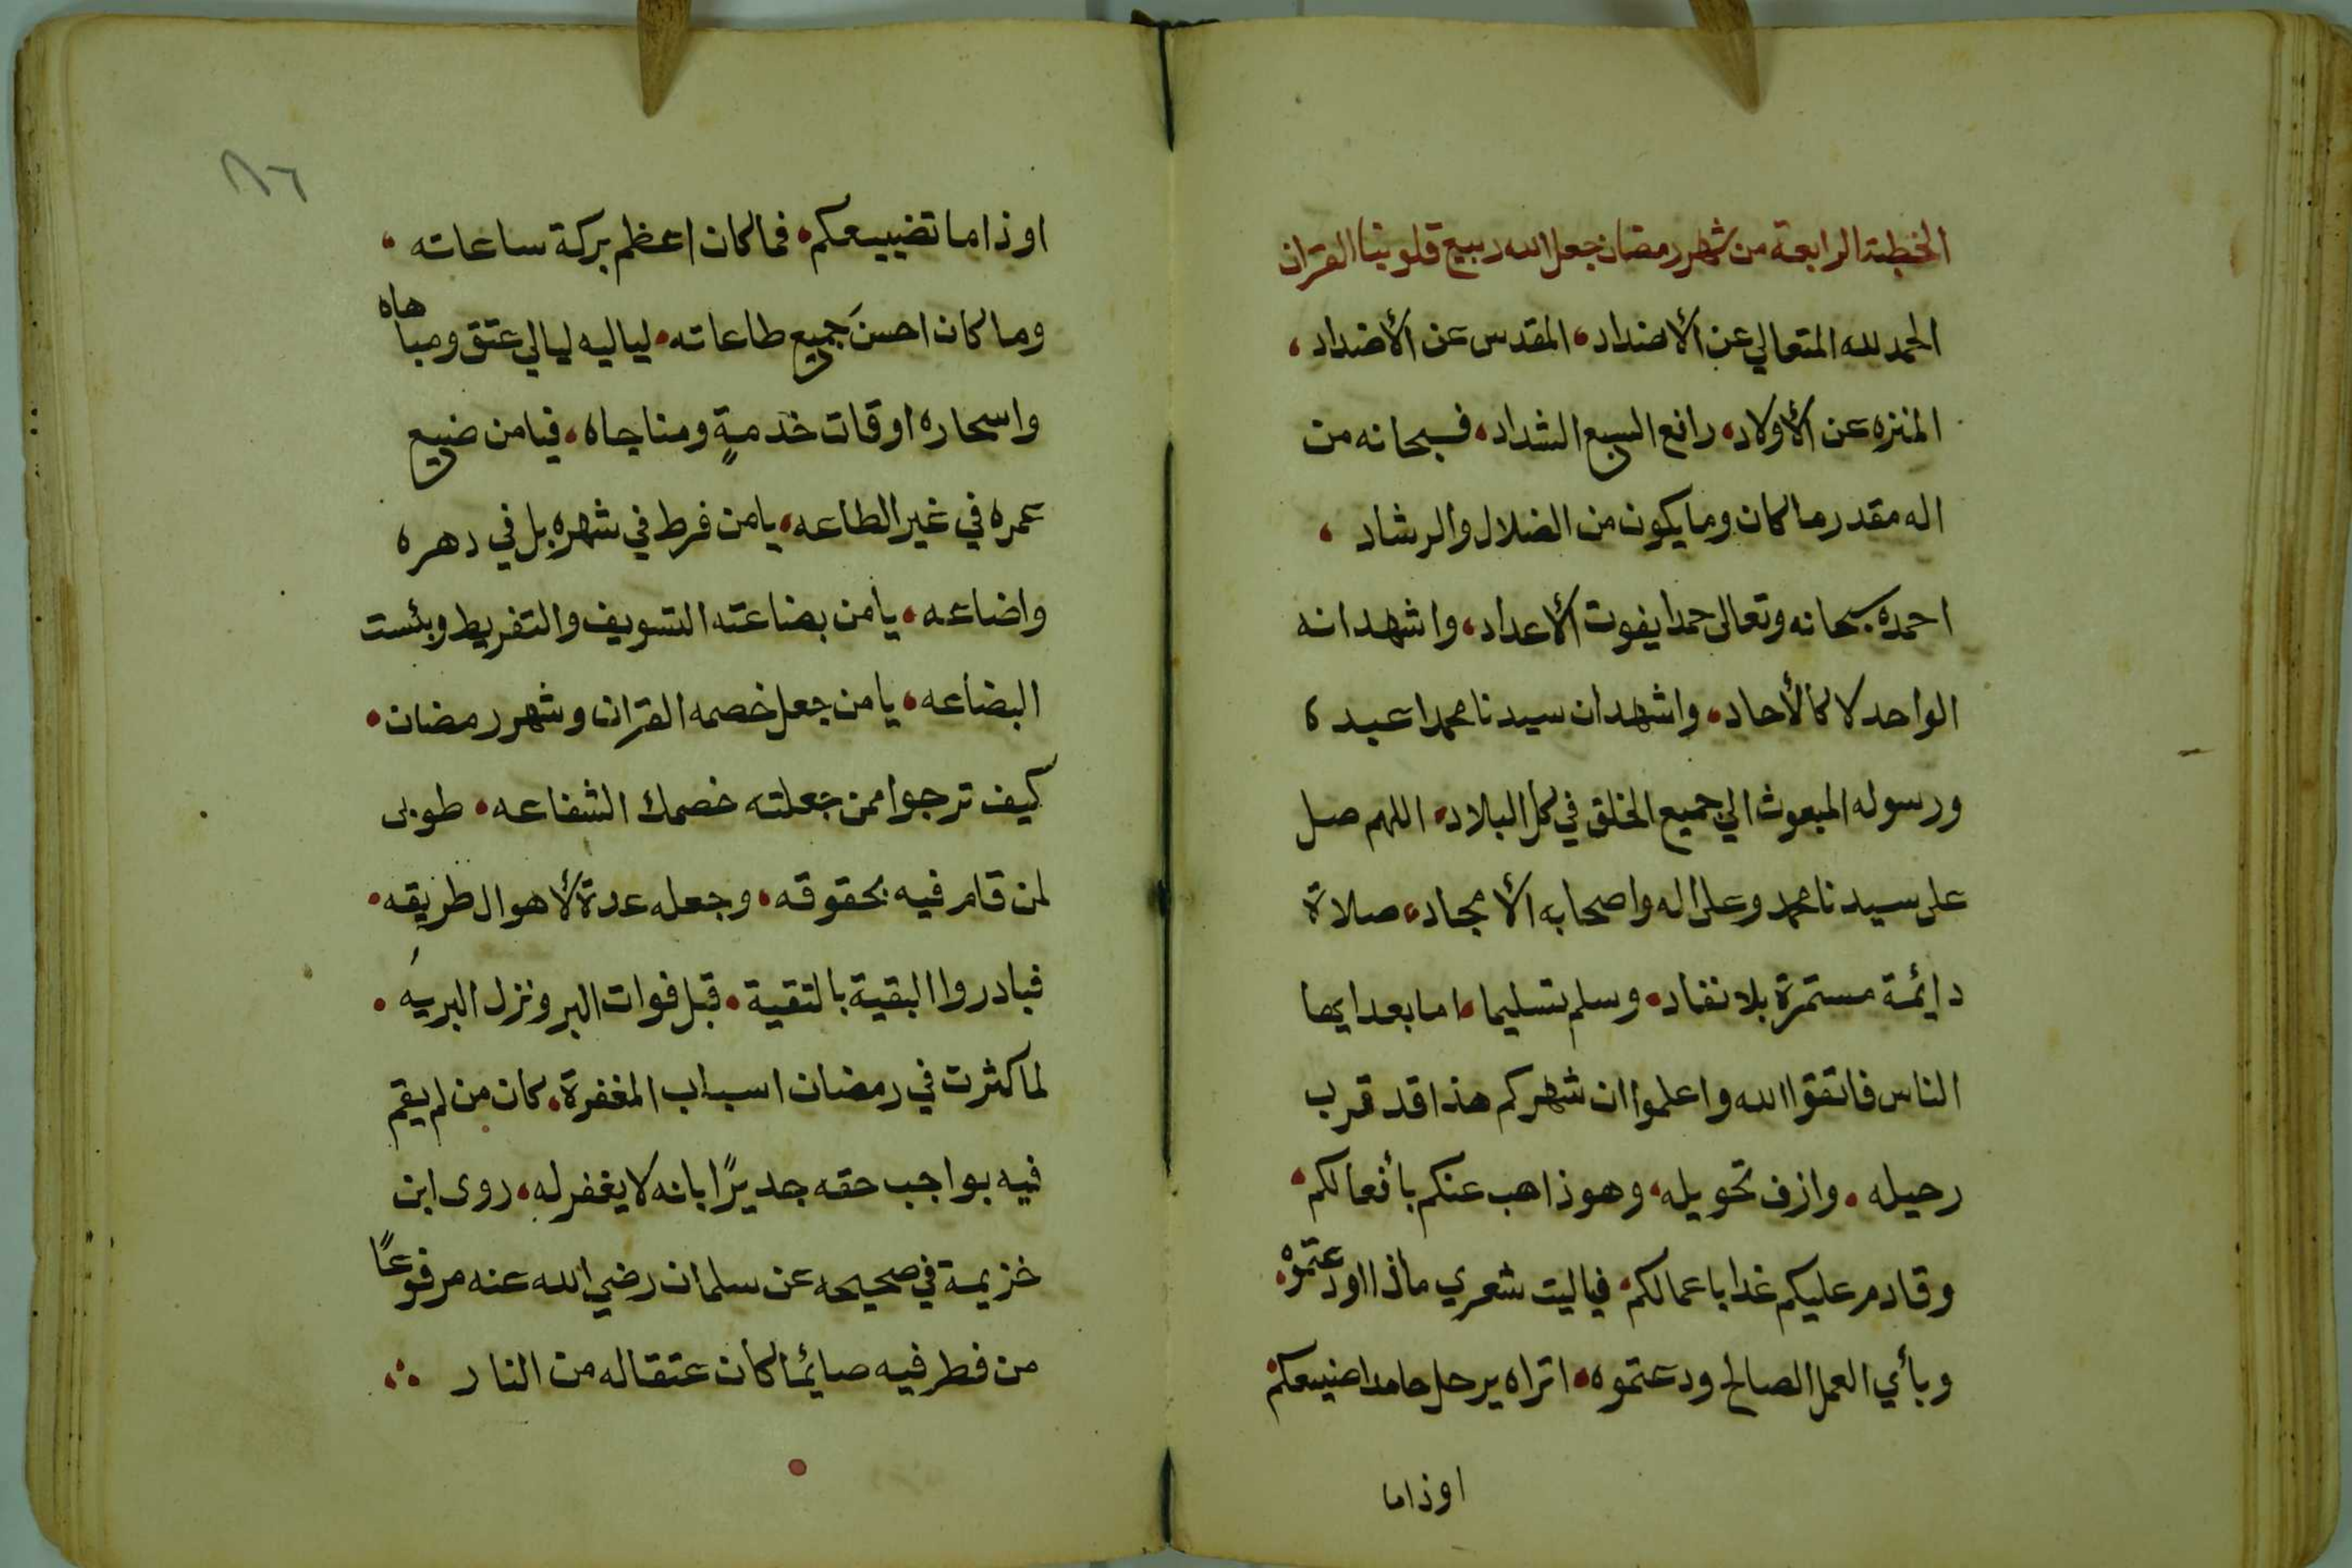 الخطبة الرابعة من شهر رمضان جعل الله ربيع قلوبنا القران
الحمد لله المتعالي عن الأضداد، المقدس عن الأضداد،
المنزه عن الأولاد، رافع السبع الشداد، فسبحانه من
اله مقدر ما كان وما يكون من الضلال والرشاد،
احمده سبحانه وتعالى حمدا يفوت الأعداد، واشهد انه
الواحد لا كالأحاد، واشهد ان سيدنا محمدا عبده
ورسوله المبعوث الي جميع الخلق في كل البلاد، اللهم صل
على سيدنا محمد وعلى اله واصحابه الأمجاد، صلاة
دائمة مستمرة بلا نفاد، وسلم تسليما، اما بعد ايها
الناس فاتقوا الله واعلموا ان شهركم هذا قد قرب
رحيله، وازف تحويله، وهو ذاهب عنكم بأفعالكم،
وقادم عليكم غدا باعمالكم، فياليت شعري ماذا اودعتموه،
وبأي العمل الصالح ودعتموه، اتراه يرحل حامدا صنيعكم،
اوذاما
٨٦
اوذاما تضييعكم، فما كان اعظم بركة ساعاته،
وما كان احسنَ جميع طاعاته، لياليه ليالي عتق ومباهاه
واسحاره اوقات خدمةٍ ومناجاه، فيامن ضيع
عمره في غير الطاعه، يامن فرط في شهره بل في دهره
واضاعه، يامن بضاعته التسويف والتفريط وبئست
البضاعه، يامن جعل خصمه القران وشهر رمضان،
كيف ترجوا ممن جعلته خصمك الشفاعه، طوبى
لمن قام فيه بحقوقه، وجعله عدة لأهوال طريقه،
فبادروا البقية بالتقية، قبل فوات البر ونزل البريه،
لما كثرت في رمضان اسباب المغفرة، كان من لم يقم
فيه بواجب حقه جديرًا بانه لا يغفر له، روى ابن
خزيمة في صحيحه عن سلمان رضي الله عنه مرفوعًا
من فطر فيه صائما كان عتقاله من النار ∴